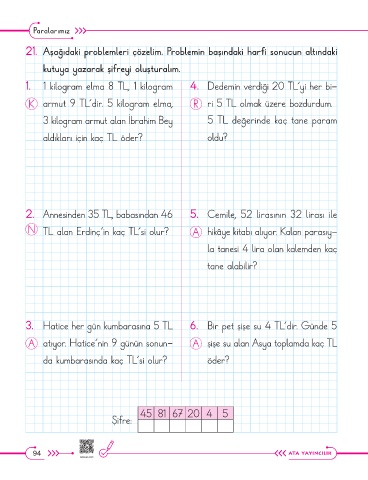 Paralarımız
21. Aşağıdaki problemleri çözelim. Problemin başındaki harfi sonucun altındaki
kutuya yazarak şifreyi oluşturalım.
1. 1 kilogram elma 8 TL, 1 kilogram
K armut 9 TL'dir. 5 kilogram elma,
3 kilogram armut alan İbrahim Bey
aldıkları için kaç TL öder?
4. Dedemin verdiği 20 TL'yi her bi-
R ri 5 TL olmak üzere bozdurdum.
5 TL değerinde kaç tane param
oldu?
2. Annesinden 35 TL, babasından 46
N TL alan Erdinç'in kaç TL'si olur?
5. Cemile, 52 lirasının 32 lirası ile
A hikâye kitabı alıyor. Kalan parasıy-
la tanesi 4 lira olan kalemden kaç
tane alabilir?
3. Hatice her gün kumbarasına 5 TL
A atıyor. Hatice'nin 9 günün sonun-
da kumbarasında kaç TL'si olur?
6. Bir pet şişe su 4 TL'dir. Günde 5
A şişe su alan Asya toplamda kaç TL
öder?
Şifre:
45 81 67 20 4 5
94
ATA YAYINCILIK